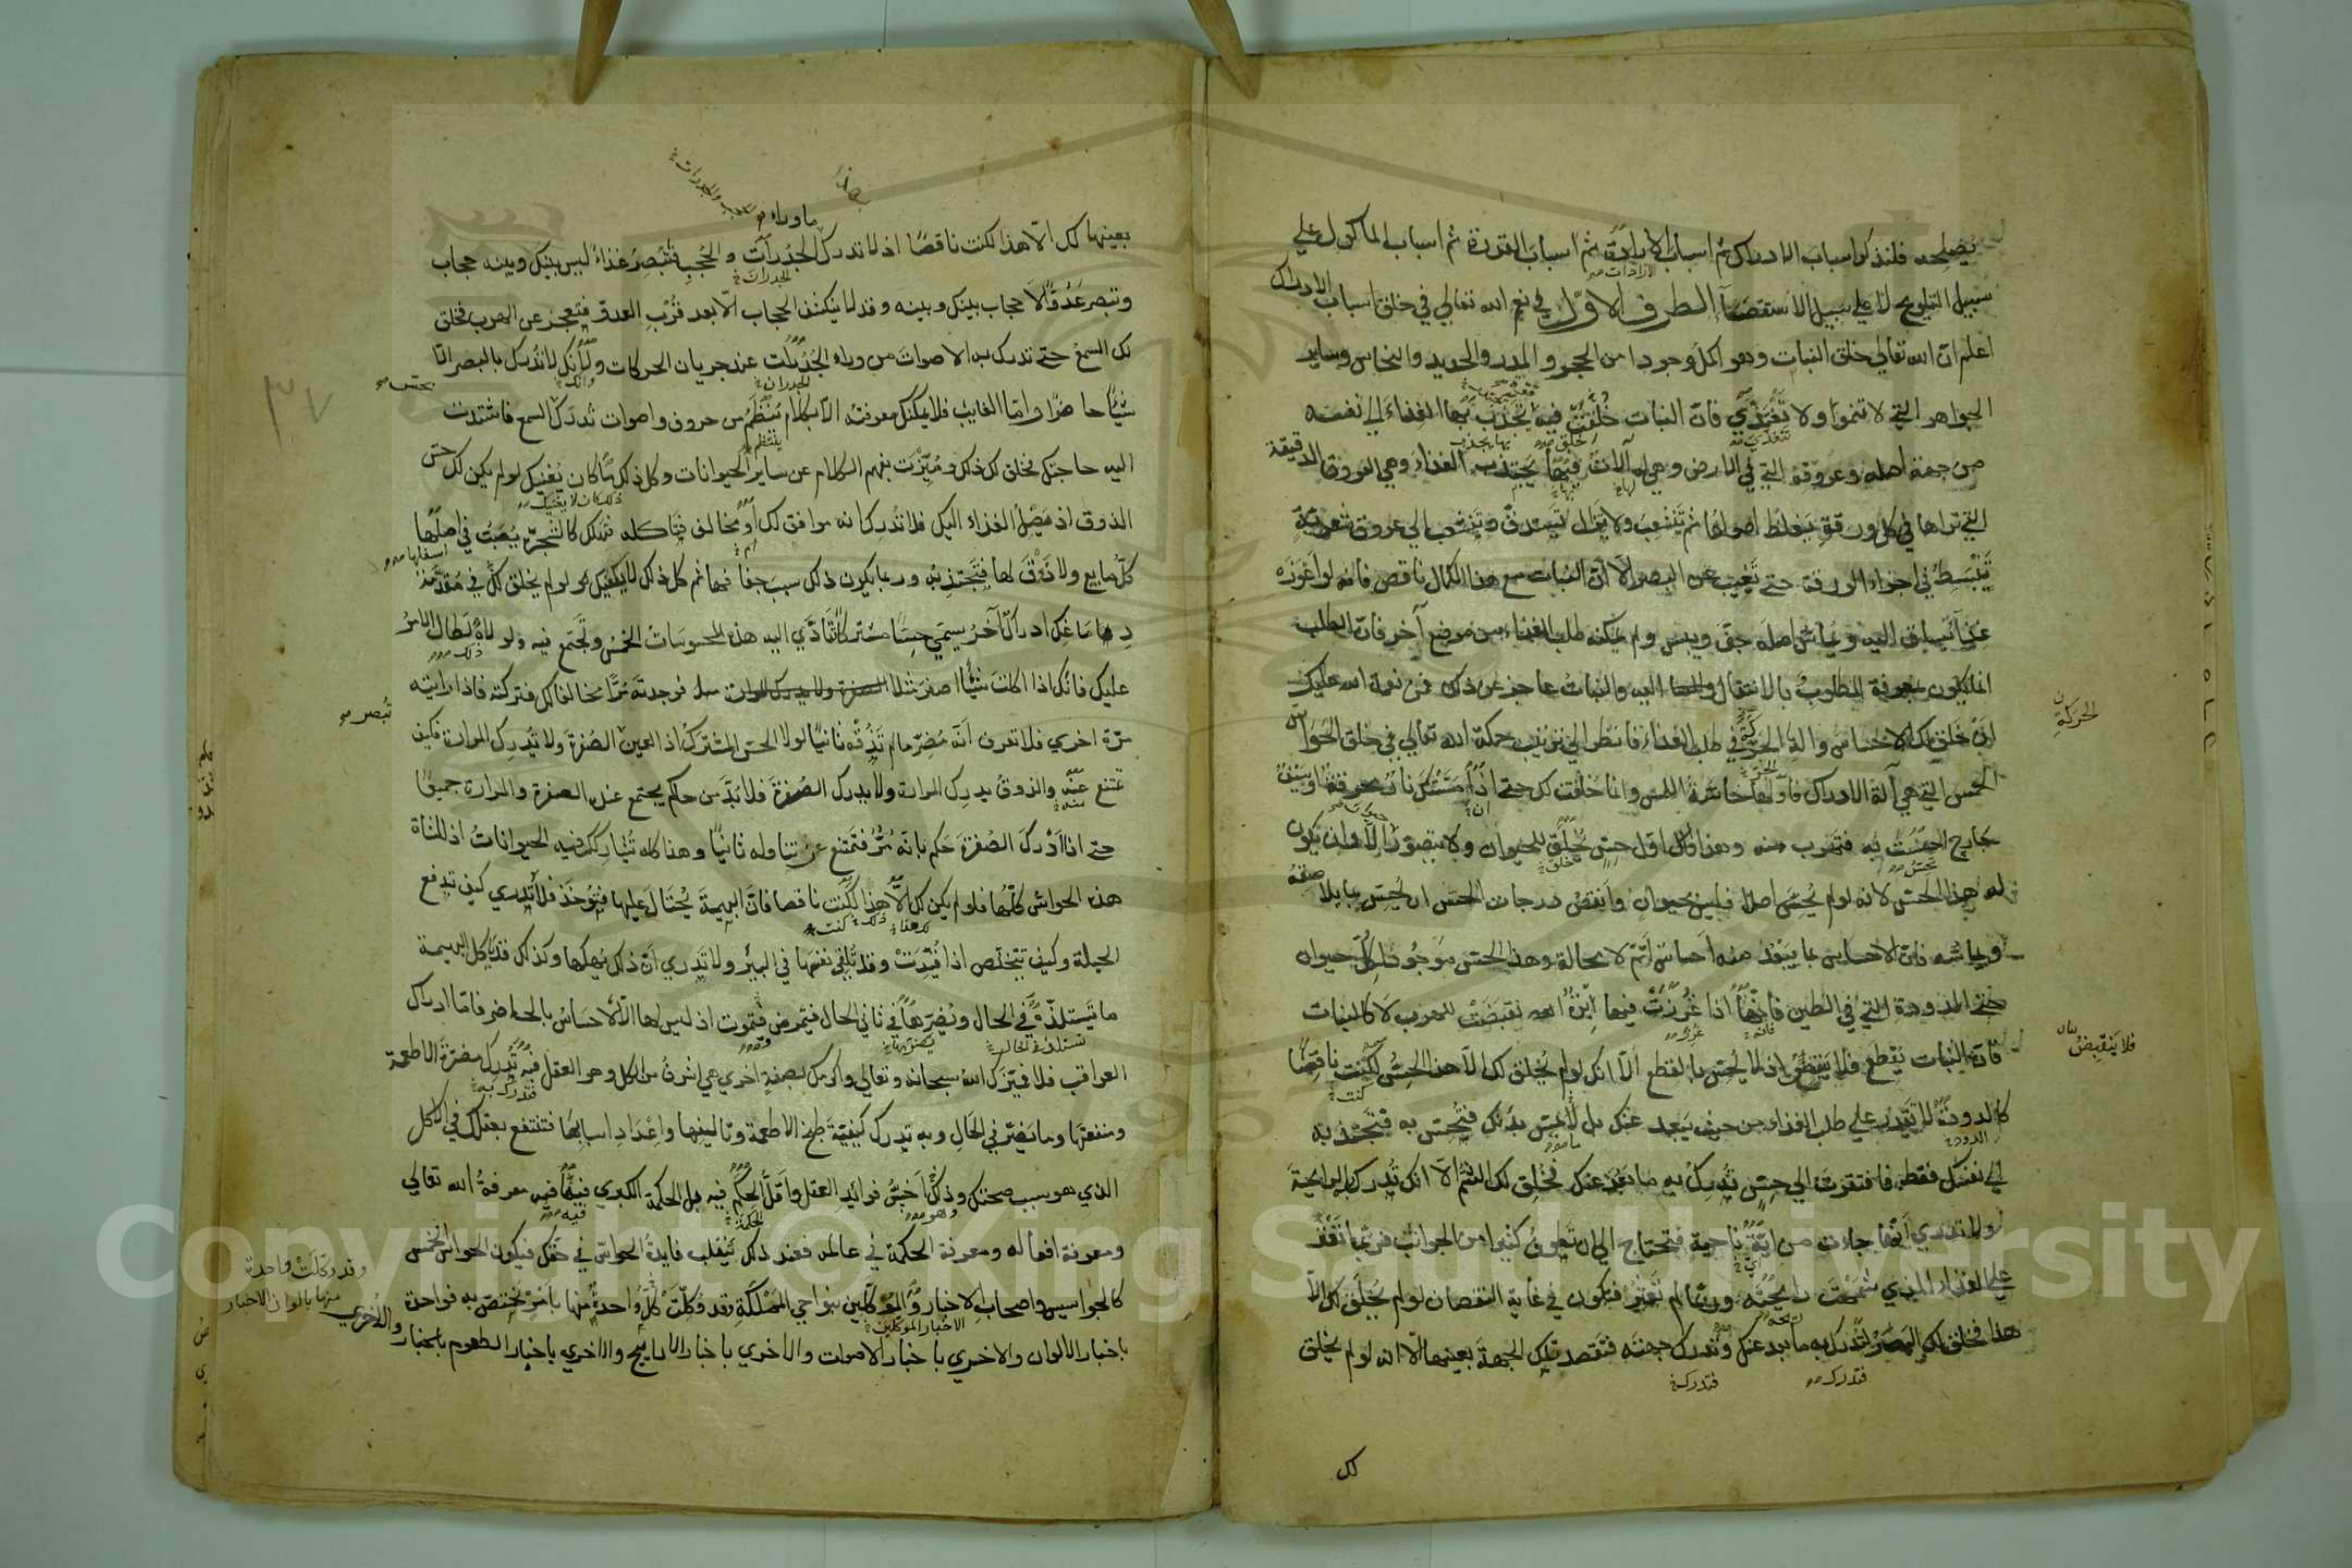 يصلحه فلنذكر اسباب الادراك ثم اسباب الارادة ثم اسباب القدرة ثم اسباب المأكول علي
سبيل التلويح لا علي سبيل الاستقصاء الطرف الاول في نعم الله تعالي في خلق اسباب الادراك
اعلم ان الله تعالي خلق النبات وهو اكمل وجودا من الحجر والمدر والحديد والنحاس وساير
الجواهر التي لا تنموا ولا تغتذي فان النبات خلقت فيه يجذب بها الغذاء الي نفسه
من جهة اصله وعروقه التي في الارض وهي له آلات فبها يجتذب الغذاء وهي العروق الدقيقة
التي تراها في كل ورقة يغلظ اصولها ثم تتشعب ولا يزال تستدق وتتشعب الي عروق شعرية
تنبسط في اجزاء الورقة حتي تغيب عن البصر الا ان النبات مع هذا الكمال ناقص فانه لو اعوزه
غذاء يساق اليه ويماس اصله جف ويبس ولم يمكنه طلب الغذاء من موضع آخر فان الطلب
انما يكون بمعرفة المطلوب بالانتقال اليه والنبات عاجز عن ذلك فمن نعمة الله عليك
ان خلق لك الاحساس وآلة الحركة في طلب الغذاء فانظر الي ترتيب حكمة الله تعالي في خلق الحواس
الخمس التي هي آلة الادراك فاولها حاسة اللمس وانما خلقت لك حتي اذا مستك نار محرقة او سيف
جارح احسست به فتهرب منه وهذا اول حس يخلق للحيوان ولا يتصور الا وان يكون
له هذا الحس لانه لو لم يحس اصلا فليس بحيوان وانقص درجات الحس ان يحس بما يلاصقه
ويماسه فان الاحساس بما يبعد منه احساس اتم لا محالة وهذا الحس موجود لكل حيوان
حتي الدودة التي في الطين فانها اذا غرزت فيها ابرة انقبضت للهرب لا كالنبات
فان النبات يقطع فلا ينقبض اذ لا يحس بالقطع الا انك لو لم يخلق لك الا هذا الحس لكنت ناقصا
كالدودة لا تقدر علي طلب الغذاء من حيث يبعد عنك بل لا يمس بدنك فيحس به فتجتذبه
الي نفسك فقط فافتقرت الي حس تدرك به ما بعد عنك فخلق لك الشم الا انك تدرك الرايحة
ولا تدري انها جاءت من اية ناحية فتحتاج الي ان تطوف كثيرا من الجوانب فربما تعثر
علي الغذاء الذي شممت رايحته وربما لم تعثر فتكون في غاية النقصان لو لم يخلق لك الا
هذا فخلق لك البصر لتدرك به ما بعد عنك وتدرك جهته فتقصد تلك الجهة بعينها الا انه لو لم يخلق
لك
الحركة
فلا ينقبض
ما وراء
بعينها لك الا هذا لكنت ناقصا اذ لا تدرك الجدرات والحجب فتبصر غذاء ليس بينك وبينه حجاب
وتبصر عدوا لا حجاب بينك وبينه وقد لا ينكشف الحجاب الا بعد قرب العدو فتعجز عن الهرب فخلق
لك السمع حتي تدرك به الاصوات من وراء الجدرات عند جريان الحركات ولانك لا تدرك بالبصر الا
شيئا حاضرا واما الغايب فلا يمكنك معرفته الا بكلام ينتظم من حروف واصوات تدرك السمع فاشتدت
اليه حاجتك فخلق لك ذلك وميزت بفهم الكلام عن ساير الحيوانات وكل ذلك ما كان يغنيك لو لم يكن لك حس
الذوق اذ يصل الغذاء اليك فلا تدرك انه موافق لك او مخالف فتاكله فتهلك كالشجرة يصب في اصلها
كل مايع ولا ذوق لها فتجتذبه وربما يكون ذلك سبب جفافها ثم كل ذلك لا يكفيك لو لم يخلق لك في مقدمة
دماغك ادراك آخر يسمي حسا مشتركا تتأدي اليه هذه المحسوسات الخمس وتجتمع فيه ولولاه لطال الامر
عليك فانك اذا اكلت شيئا اصفر مثلا فوجدته مرا مخالفا لك فتركته فاذا رايته
مرة اخري فلا تعرف انه مضر ما لم تذقه ثانيا لولا الحس المشترك اذ العين الصفرة ولا تدرك المرارة فكيف
تمتنع عنه والذوق يدرك المرارة ولا يدرك الصفرة فلا بد من حاكم يجتمع عنده الصفرة والمرارة جميعا
حتي اذا ادرك الصفرة حكم بانه مر فتمتنع عن تناوله ثانيا وهذا كله تشاركك فيه الحيوانات اذ للشاة
هذه الحواس كلها فلو لم يكن لك الا هذا لكنت ناقصا فان البهيمة يحتال عليها فتؤخذ فلا تدري كيف تدفع
الحيلة وكيف تتخلص اذا قيدت وقد تلقي نفسها في البير ولا تدري ان ذلك يهلكها وكذلك قد تاكل البهيمة
ما تستلذه في الحال ويضرها في ثاني الحال فتمرض فتموت اذ ليس لها الا الاحساس بالحاضر فاما ادراك
العواقب فلا فميزك الله سبحانه وتعالي واكرمك بصفة اخري هي اشرف من الكل وهو العقل فبه تدرك مضرة الاطعمة
ومنفعتها وما يضر في الحال وبه تدرك كيفية طبخ الاطعمة وتاليفها واعداد اسبابها فتنتفع بعقلك في الاكل
الذي هو سبب صحتك وذلك اخس فوائد العقل واقل الحكم فيه بل الحكمة الكبري فيه معرفة الله تعالي
ومعرفة افعاله ومعرفة الحكمة في عالمه فعند ذلك ينقلب فايدة الحواس في حقك فيكون الحواس الخمس
كالجواسيس واصحاب الاخبار والموكلين بنواحي المملكة وقد وكلت كل واحدة منها بامر تختص به فواحدة
باخبار الالوان والاخري باخبار الاصوات والاخري باخبار الاراييح والاخري باخبار الطعوم
تبصر
وقد وكلت واحدة
منها بالوان الاخبار
والاخري
٣٧
Copyright © King Saud University
1957